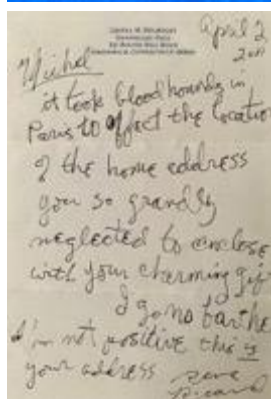 April 2
Michel
it took bloodhounds in
Paris to effect the locatio
of the home address
you so grandly
neglected to enclose
with your charming gif
I go no farthe
I'm not positive this is
your address